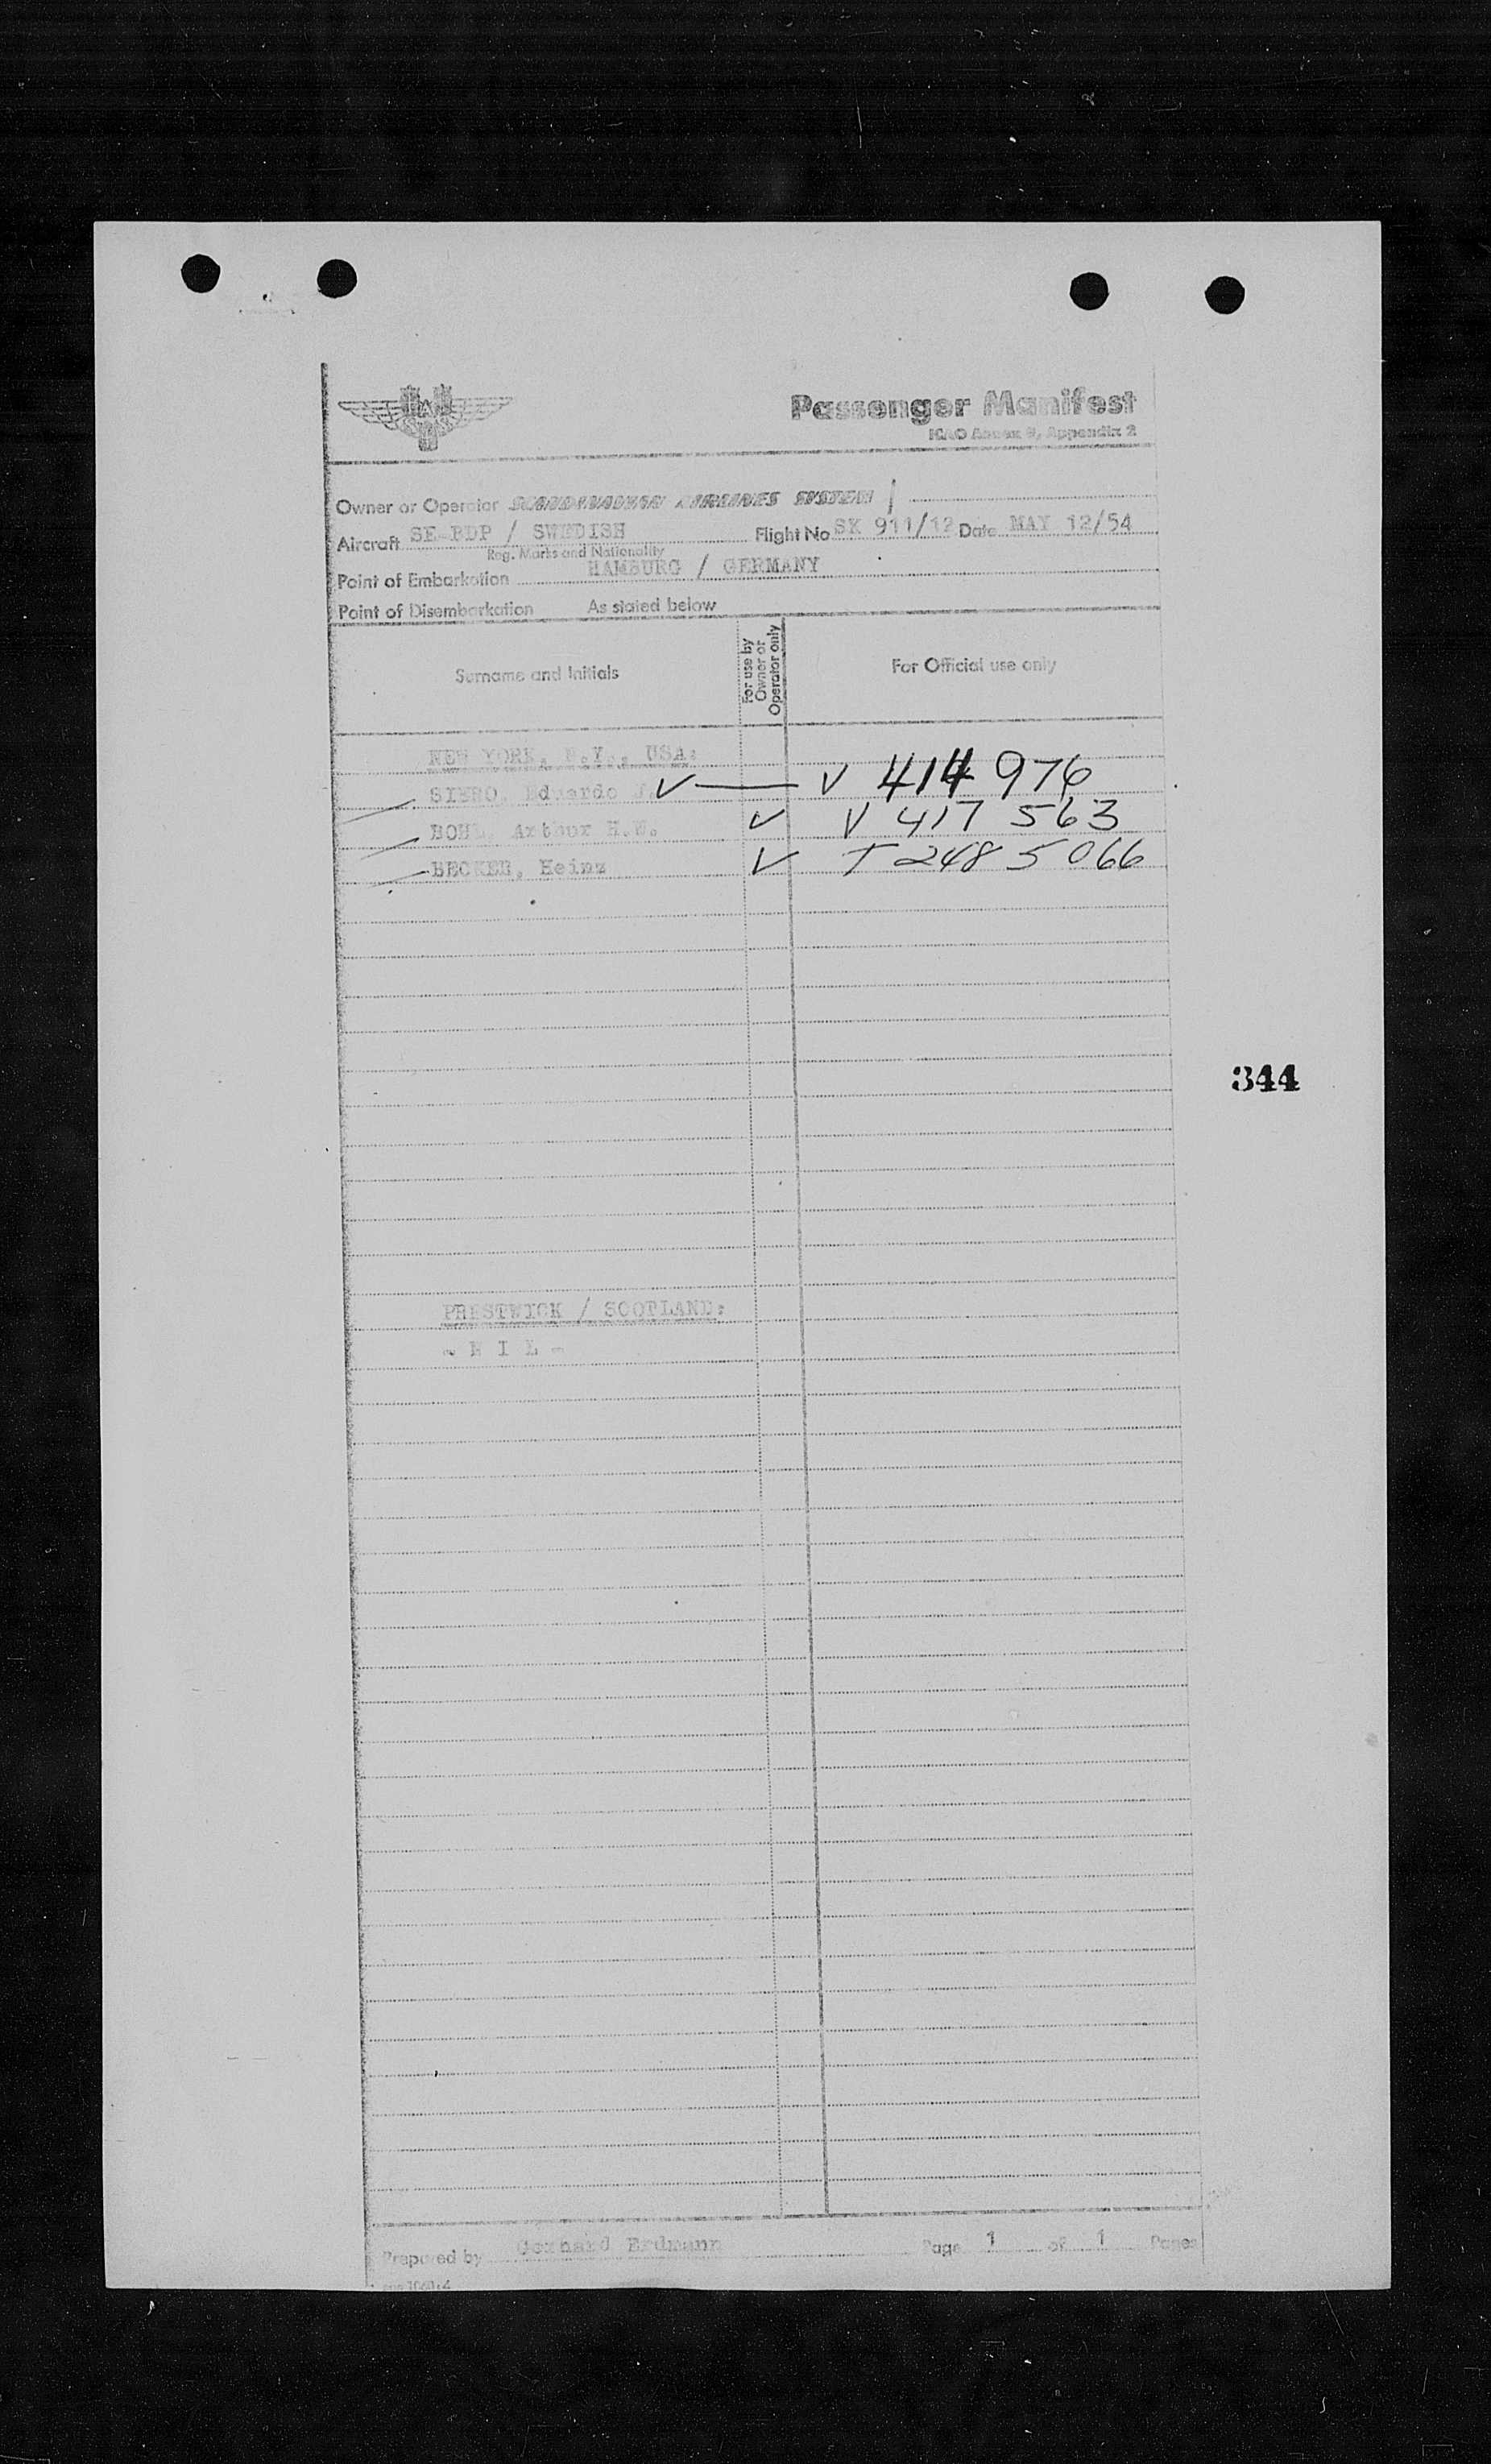 Passenger Manifest
ICAO Annex 9, Appendix 2
Owner or Operator SCANDINAVIAN AIRLINES SYSTEM
Aircraft SE-BDP / SWEDISH Flight No SK 911/12 Date MAY 12/54
Reg. Marks and Nationality
Point of Embarkation HAMBURG / GERMANY
Point of Disembarkation As stated below
Surname and Initials For use by Owner or Operator only For Official use only
NEW YORK, N.Y., USA:
SIERO, Eduardo J. ✓ V 414 976
Arthur H.W. ✓ V 417 563
BECKER, Heinz ✓ T 248 5 066
344
PRESTWICK / SCOTLAND:
- N I L -
Prepared by Gerhard Erdmann Page 1 of 1 Pages